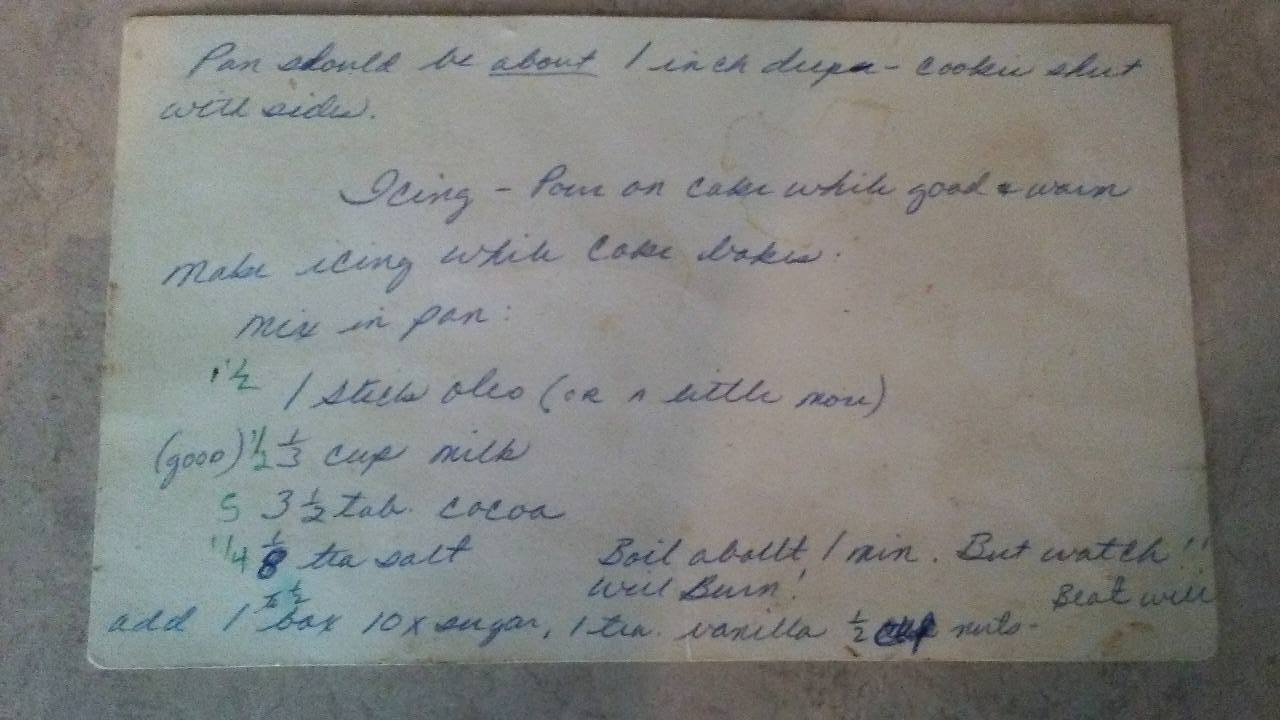 Pan should be about 1 inch deep - cookie sheet
with sides.
Icing - Pour on cake while good & warm
Make icing while cake bakes.
Mix in pan:
1 1/2 1 stick oleo (or a little more)
(good) 1/2 1/3 cup milk
5 3 1/2 tab. cocoa
1/4 1/8 tea salt
Boil about 1 min. But watch!!
Will Burn!
Beat well
add 1 box 10x sugar, 1 tea. vanilla 1/2 cup nuts-